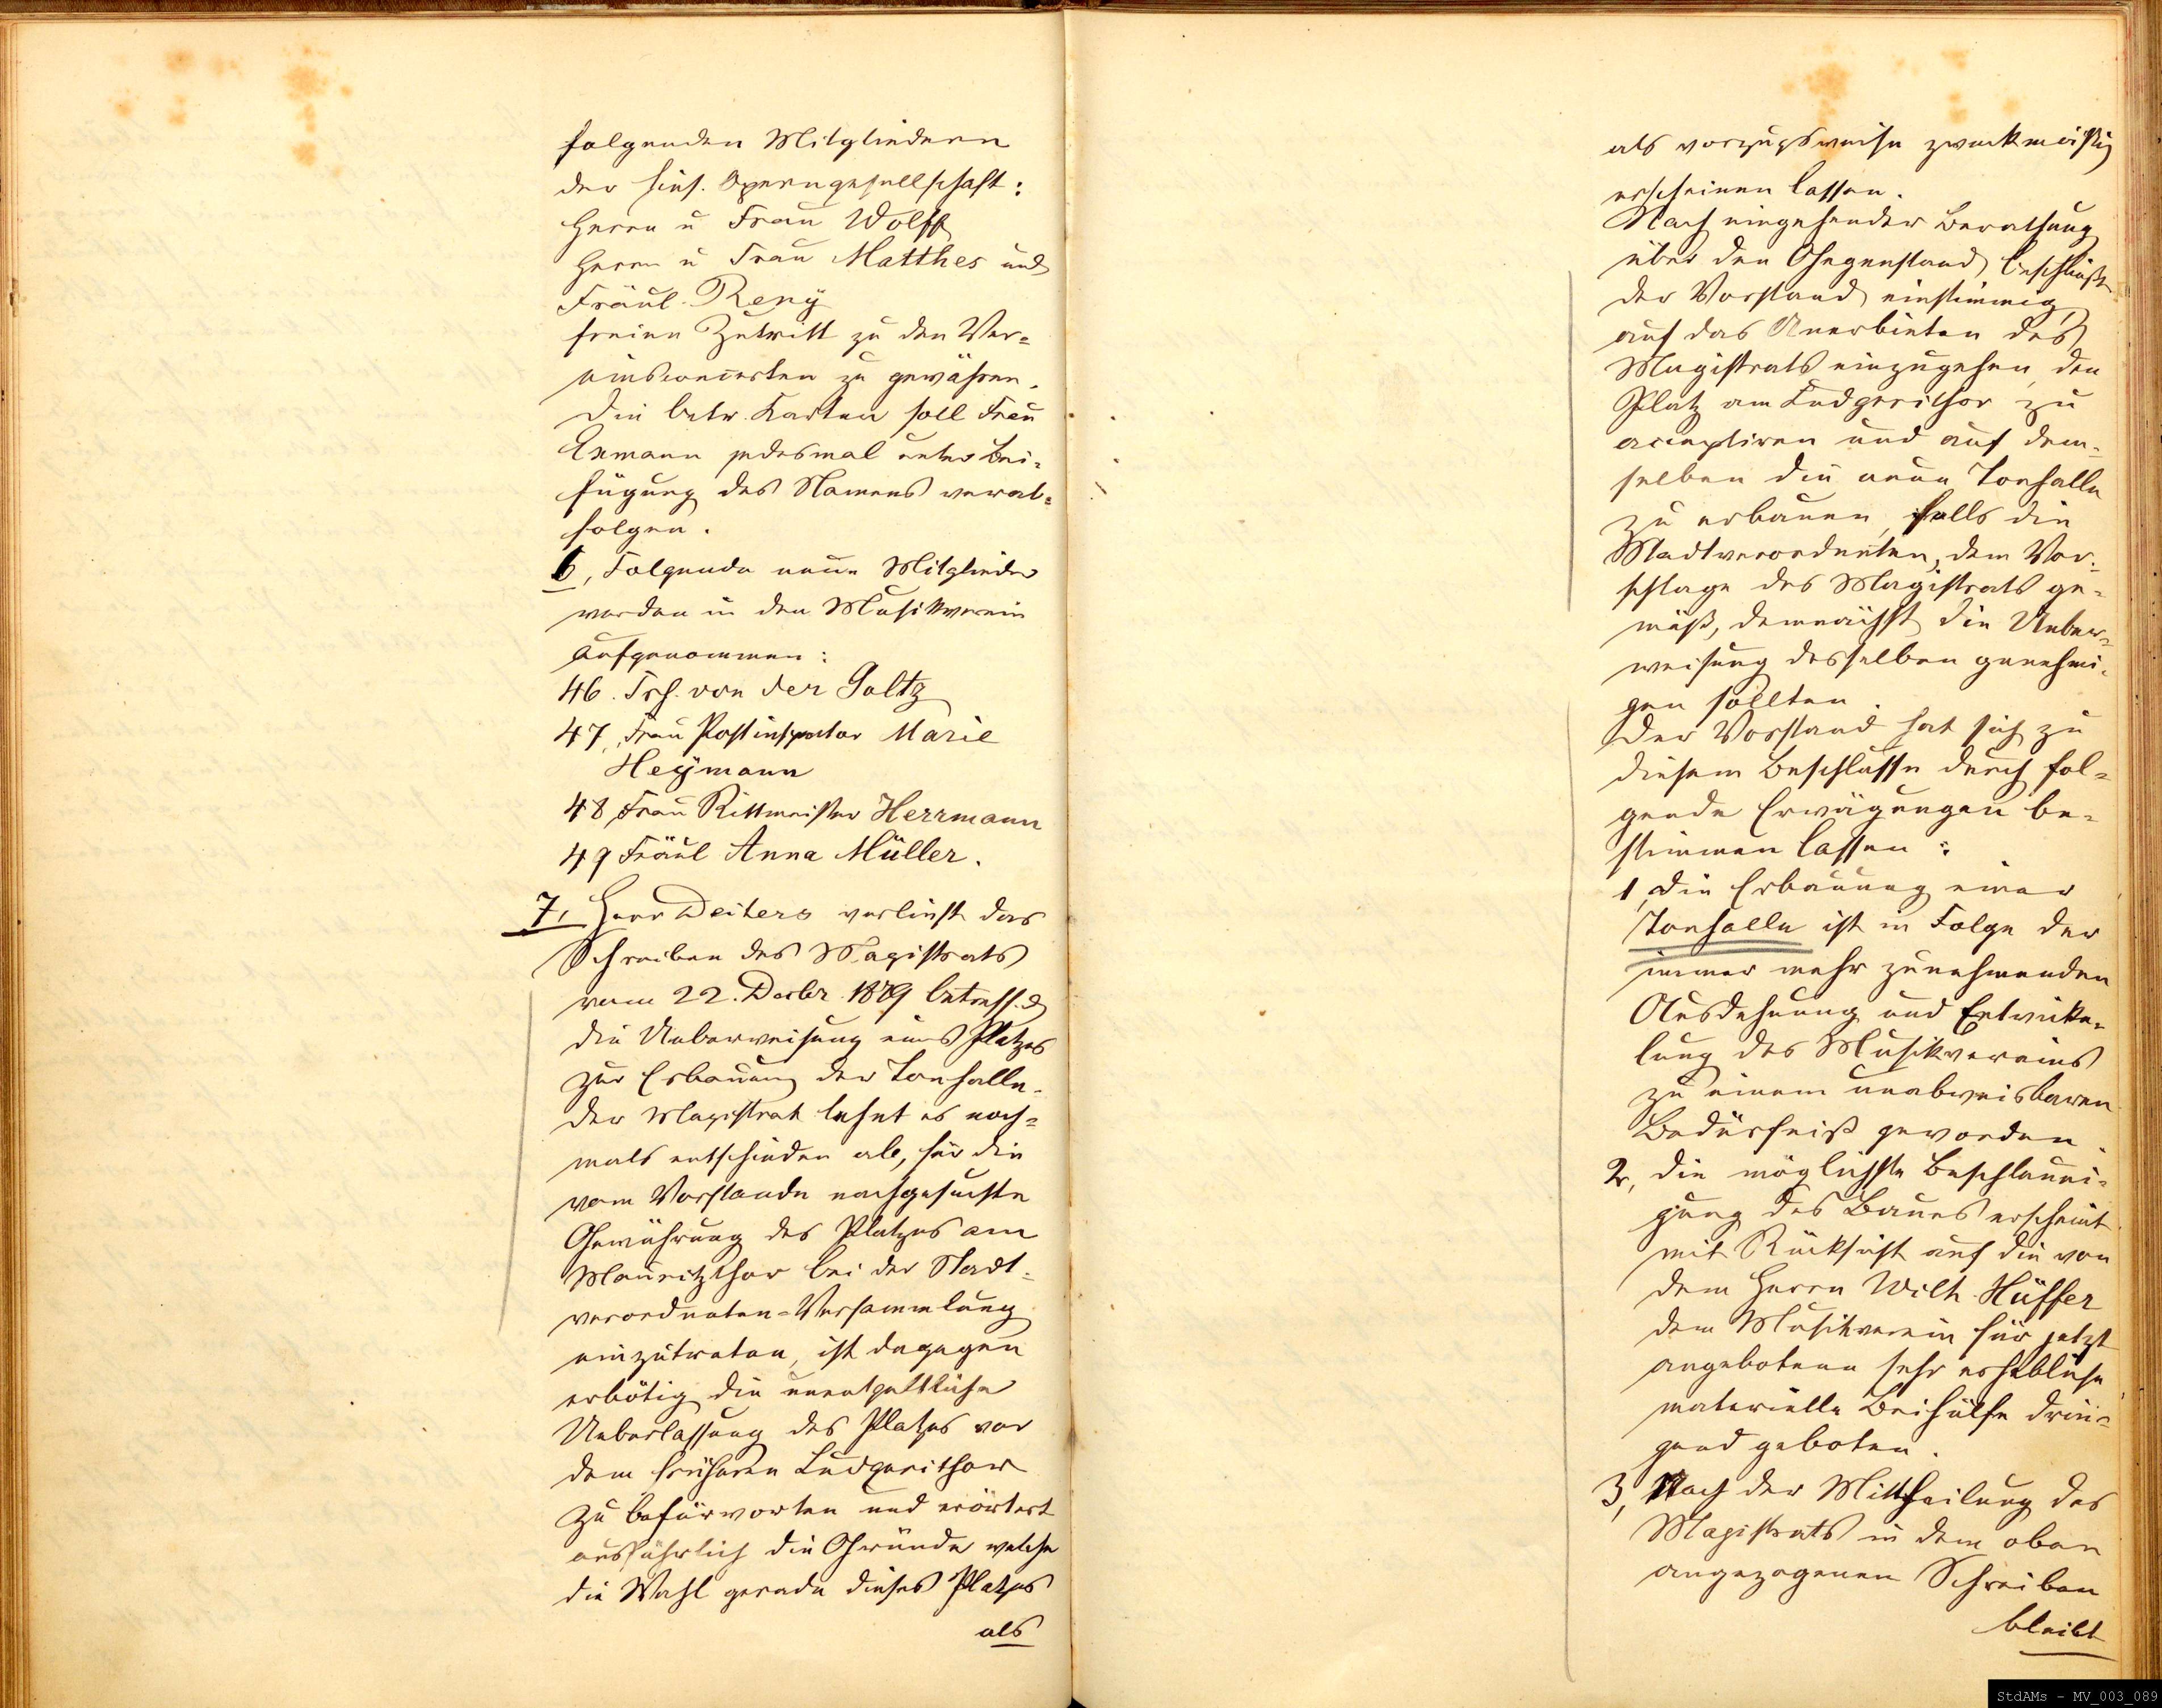 folgenden Mitgliedern
der hies. Operngesellschaft:
Herrn u Frau Wolff
Herrn u Frau Matthes und
Fräul. Reny
freien Zutritt zu den Ver-
einsconcerten zu gewähren.
Die betr. Karten soll Frau
Exmann jedesmal unter Bei-
fügung des Namens verab-
folgen.
6, Folgende neue Mitglieder
werden in den Musikverein
aufgenommen:
46. Frh. von der Goltz
47, Frau Postinspector Marie
Heÿmann
48 Frau Rittmeister Herrmann
49 Fräul Anna Müller.
7, Herr Deiters verliest das
Schreiben des Magistrats
vom 22. Decbr. 1879 betreff.d
die Ueberweisung eines Platzes
zur Erbauung der Tonhalle.
Der Magistrat lehnt es noch-
mals entschieden ab, für die
vom Vorstande nachgesuchte
Gewährung des Platzes am
Mauritzthor bei der Stadt-
verordneten-Versammlung
einzutreten, ist dagegen
erbötig die unentgeltliche
Ueberlassung des Platzes vor
dem früheren Ludgerithor
zu befürworten und erörtert
ausführlich die Gründe welche
die Wahl gerade dieses Platzes
als
als vorzugsweise zweckmäßig
erscheinen lassen.
Nach eingehender Berathung
über den Gegenstand beschließt
der Vorstand einstimmig,
auf das Anerbieten des
Magistrats einzugehen, den
Platz am Ludgerithor zu
acceptiren und auf dem-
selben die neue Tonhalle
zu erbauen, falls die
Stadtverordneten, dem Vor-
schlage des Magistrats ge-
mäß, demnächst die Ueber-
weisung desselben genehmi-
gen sollten.
Der Vorstand hat sich zu
diesem Beschlusse durch fol-
gende Erwägungen be-
stimmen lassen:
1, Die Erbauung einer
Tonhalle ist in Folge der
immer mehr zunehmenden
Ausdehnung und Entwicke-
lung des Musikvereins
zu einem unabweisbaren
Bedürfniß geworden.
2, Die möglichste Beschleuni-
gung des Baues erscheint
mit Rücksicht auf die von
dem Herrn Wilh. Hüffer
dem Musikverein für jetzt
angebotene sehr erhebliche
materielle Beihülfe drin-
gend geboten.
3, Nach der Mittheilung des
Magistrats in dem oben
angezogenen Schreiben
bleibt
StdAMs - MV_003_089